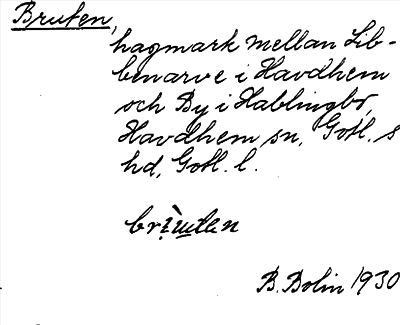 Bruten,
hagmark mellan Lib-
benarve i Havdhem
och By i Hablingbo,
Havdhem sn, Gotl. s
hd, Gotl. l.
B. Bolin 1930